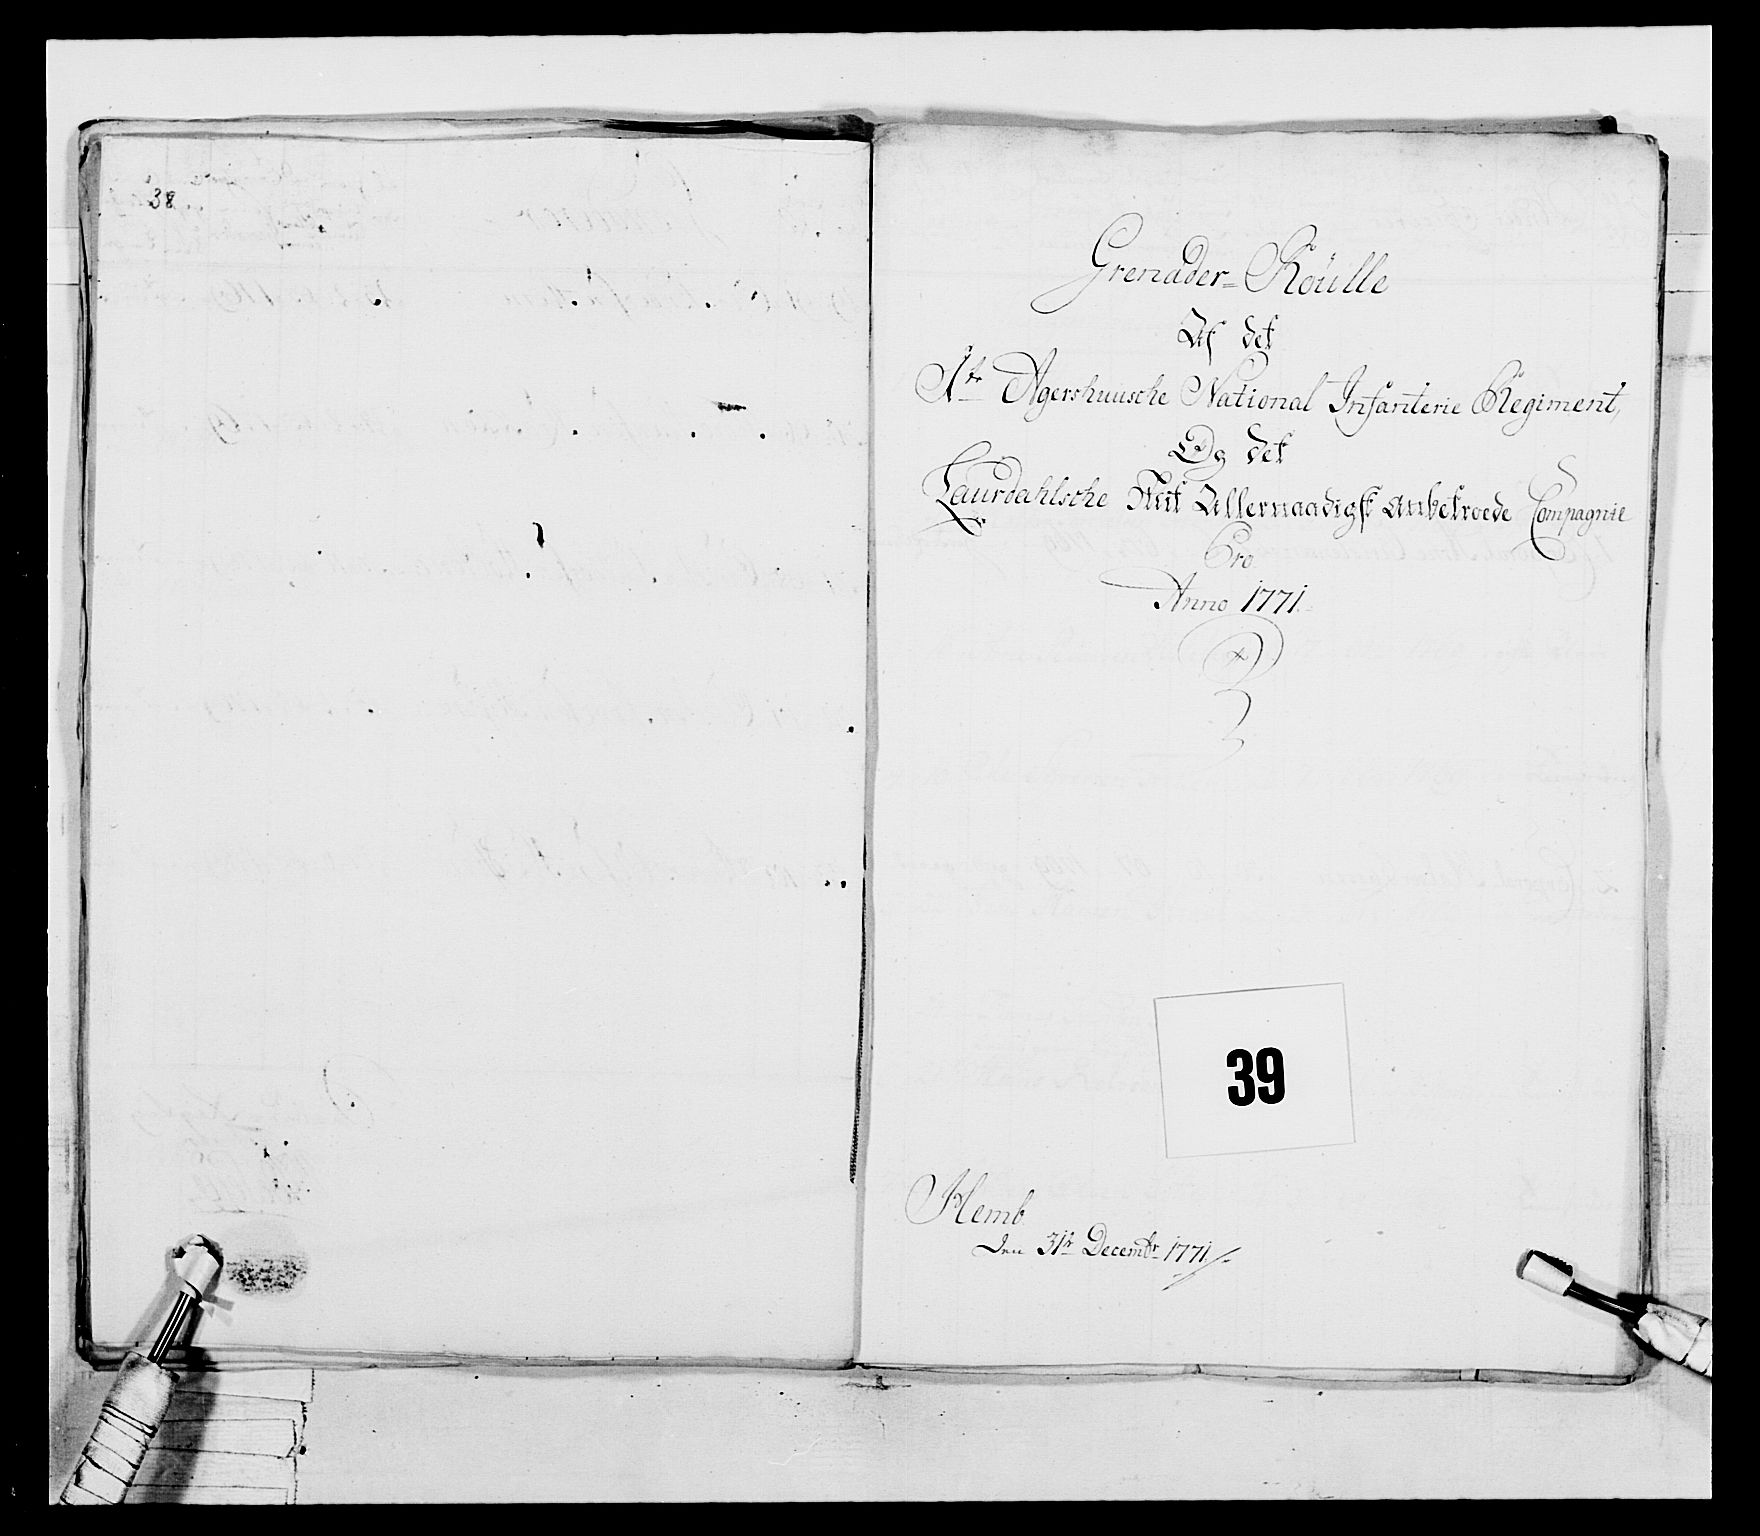 38.
Grenader=Roülle
Af det
1te Agershuusche National Infanterie Regiment,
Og det
Laurdahlsche Mit Allernaadigst anbetroede Compagnie
Pro
Anno 1771.
39
Hemb.
den 31te Decembr 1771